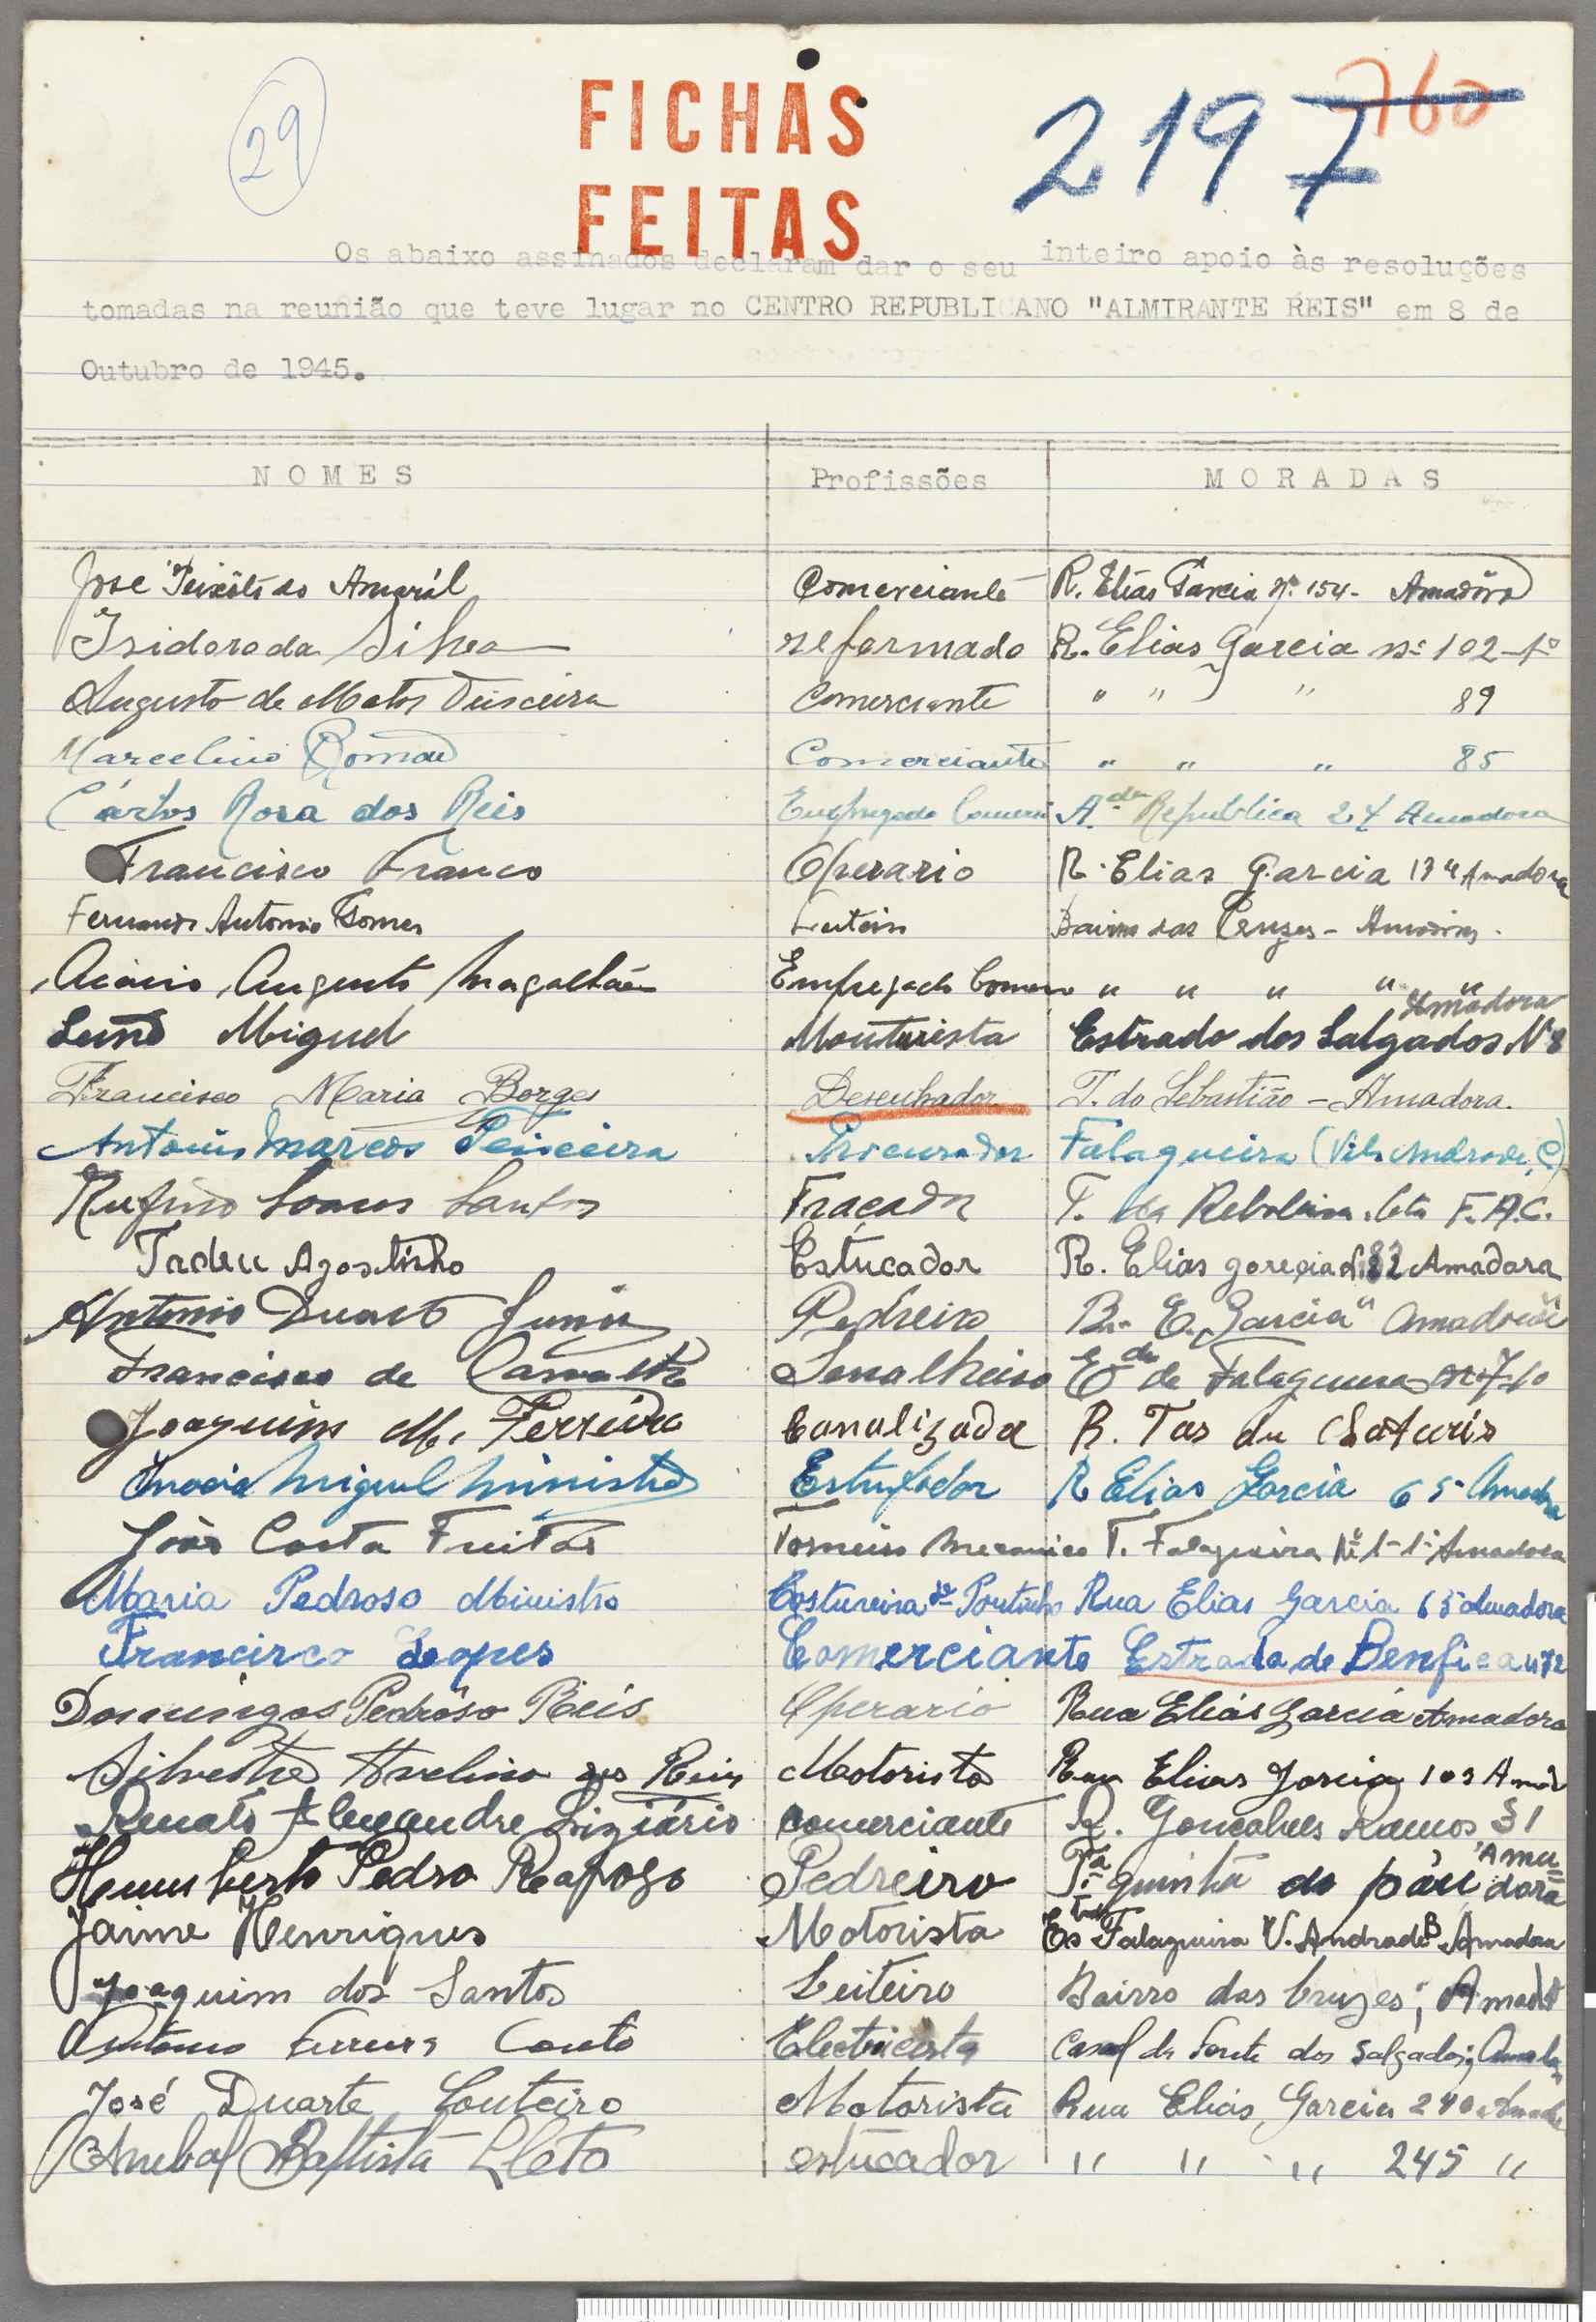 29
FICHAS
FEITAS
2197
760
Os abaixo assinados declaram dar o seu inteiro apoio às resoluções
tomadas na reunião que teve lugar no CENTRO REPUBLICANO "ALMIRANTE REIS" em 8 de
Outubro de 1945.
NOMES Profissões MORADAS
José Teixeira do Amarál Comerciante R. Elias Garcia nº 154 - Amadôra
Isidoro da Silva reformado R. Elias Garcia nº 102-1º
Augusto de Matos Teixeira Comerciante " " " 89
Marcelino Comerciante " " " 85
Cárlos Rosa dos Reis Empregado Comerci A.da Republica 27 Amadora
Francisco Franco Operario R. Elias Garcia 134 Amadora
Fernando Antonio Gomes Bairro das Cruzes - Amadora.
Acácio Augusto Magalhães Empregado Comerc " " " " "
Miguel Estrada dos Salgados Nº 8 Amadora
Francisco Maria Borges Desenhador T. do Sebastião - Amadora.
Antonio Marcos Teixeira Procurador Falagueira (Vila Andrade, C)
Rufino Santos Traçador T. da Reboleira. F.A.C.
Tadeu Agostinho Estucador R. Elias Amadora
Antonio Duarte Junior Pedreiro E. Garcia" Amadora
Francisco de Carvalho Serralheiro Falagueira
Joaquim M. Ferreira Canalizador R.
Inacia Miguel Ministro Estufador R Elias Garcia 65 Amadora
João Costa Freitas Torneiro Mecanico T. Falagueira Nº 1-1º Amadora
Maria Pedroso Ministro Costureira Rua Elias Garcia 65 Amadora
Francisco Lopes Comerciante Estrada de Benfica 472
Domingos Pedrôso Reis Operario Rua Elias Garcia Amadora
Silvestre Avelino dos Reis Motorista Rua Elias Garcia 103 Amad
Renato Alexandre Liziário comerciante R. Gonçalves Ramos 31
Humberto Pedro Rapozo Pedreiro Tª quinta do páu Amadora
Jaime Henriques Motorista Falagueira V. Andrade B Amadora
Joaquim dos Santos Leiteiro Bairro das Cruzes; Amad
António Ferreira Couto Electricista Casal da Fonte dos Salgados;
José Duarte Louteiro Motorista Rua Elias Garcia 240
Anibal Baptista estucador " " " 245 "